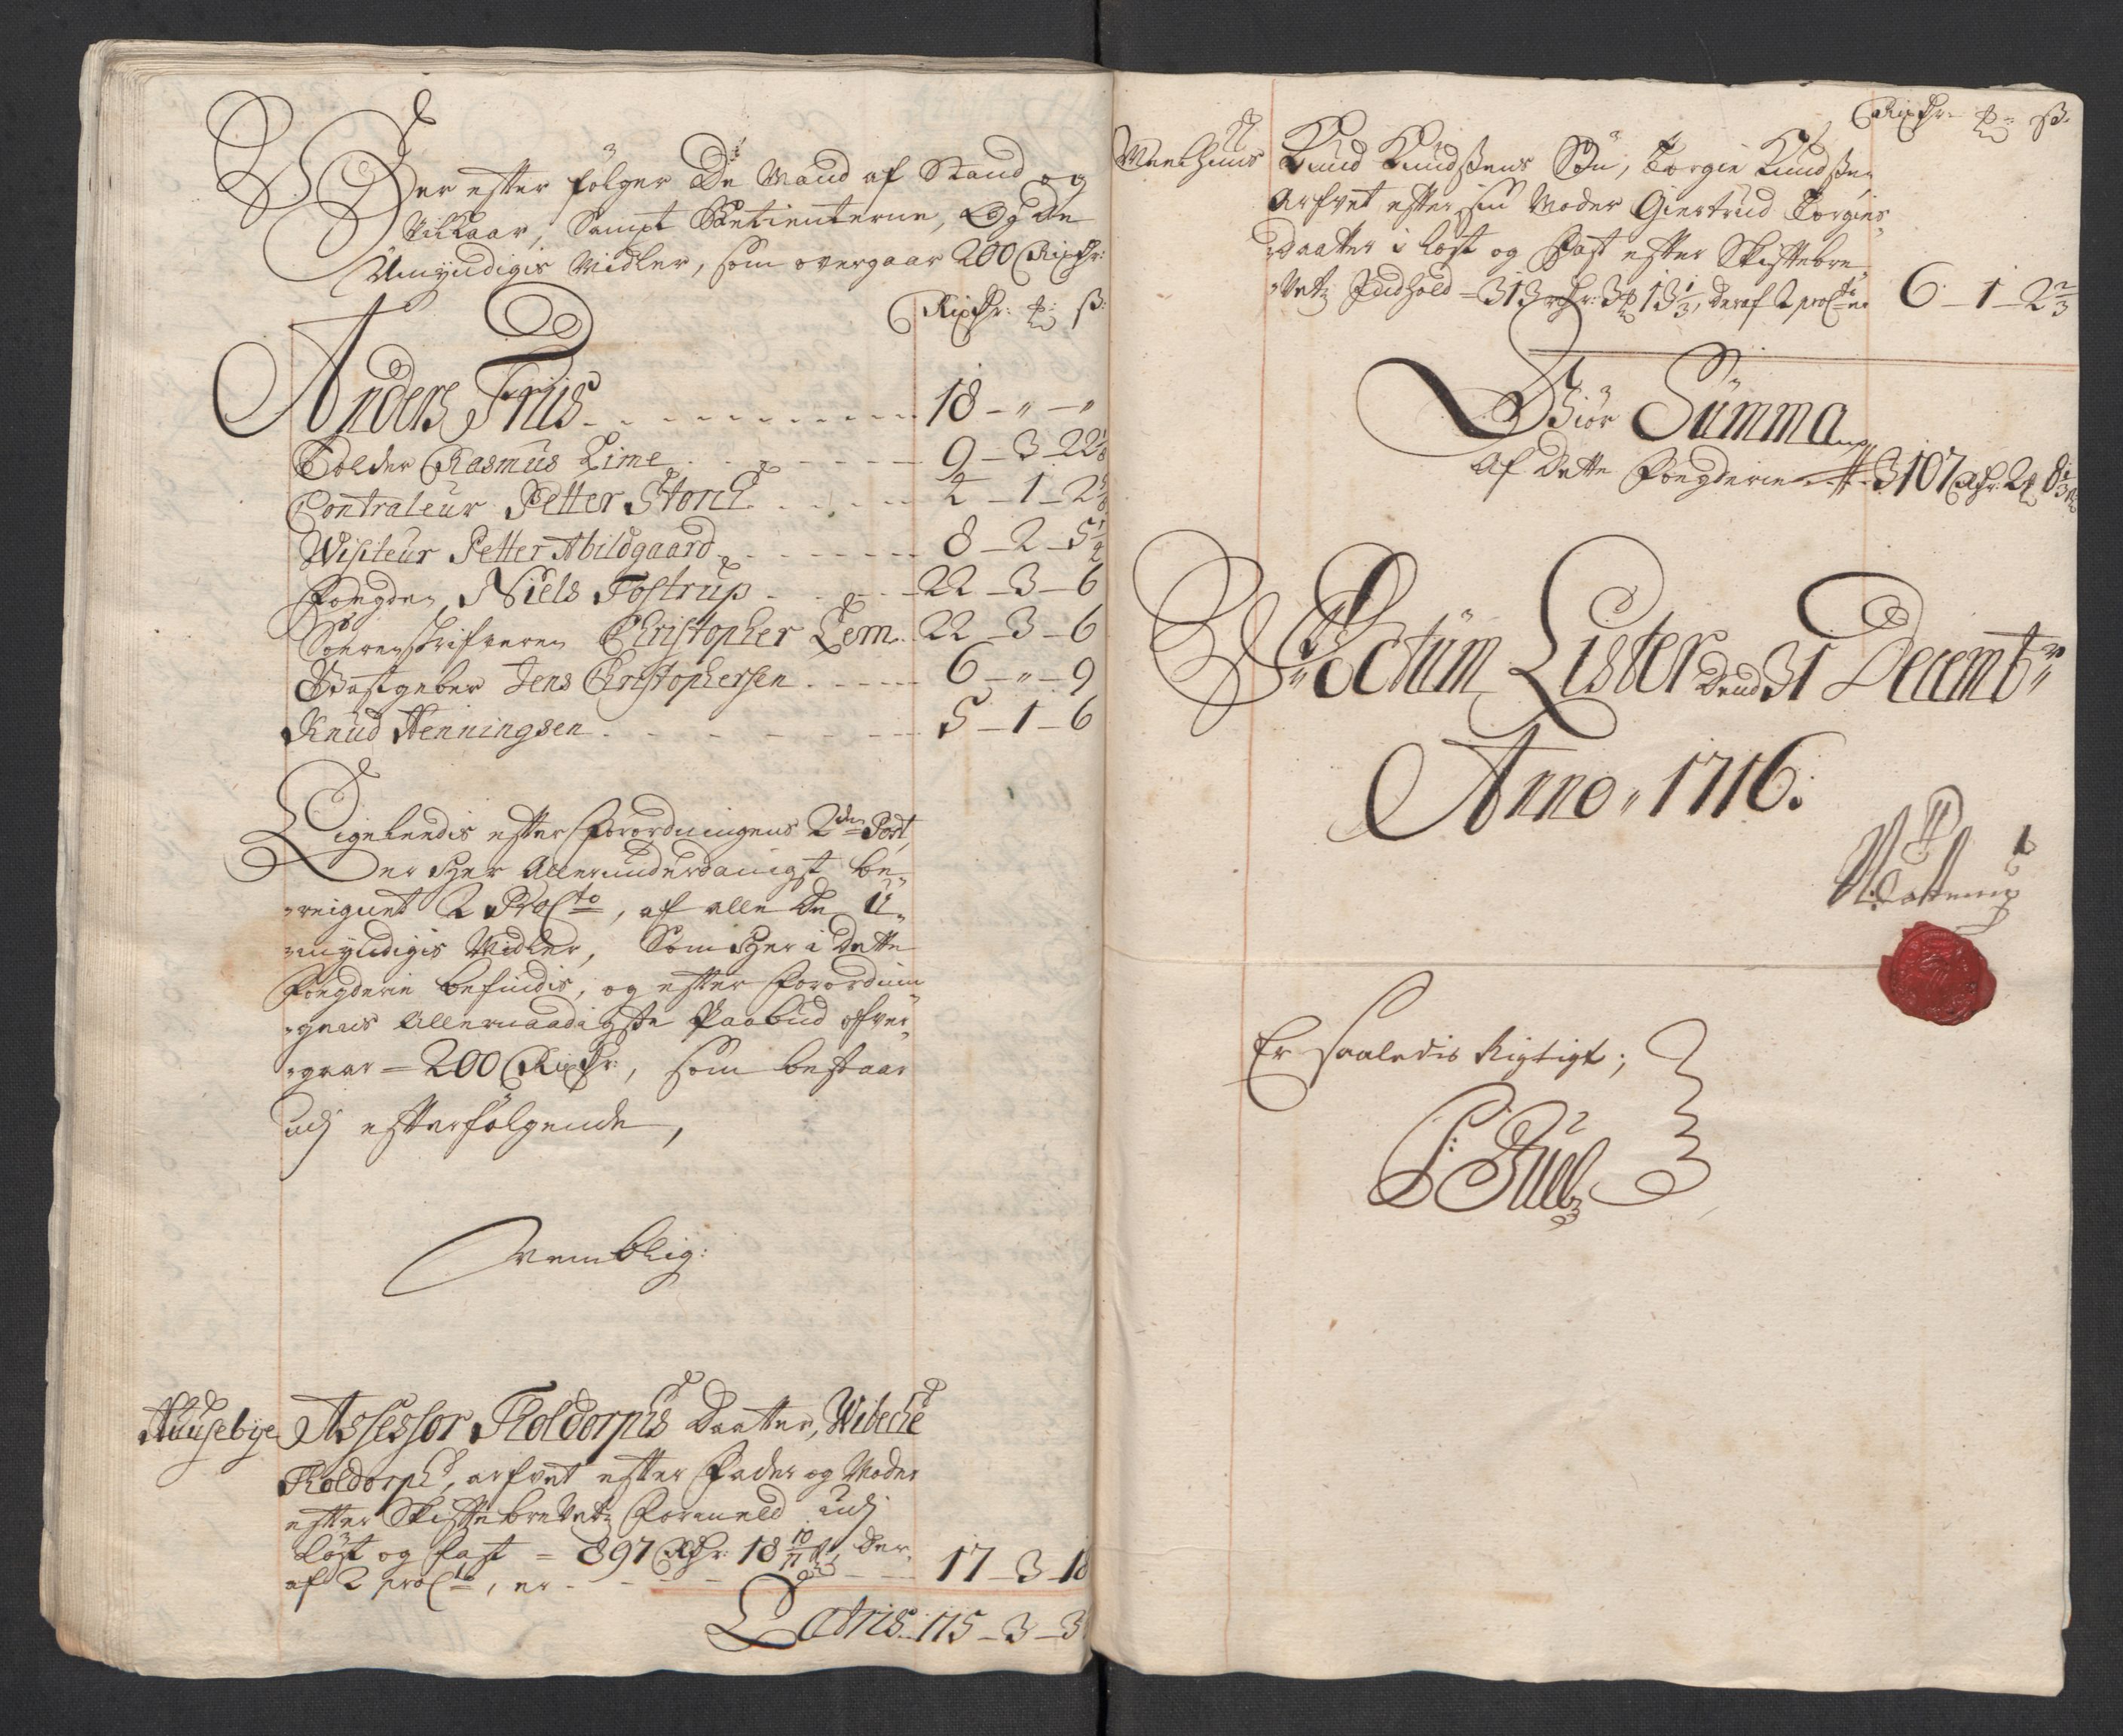 Her efter følger De Mænd af Stand og
Vilkaar, Sampt Betienterne, Og De
Umyndigis Midler, som overgaar 200 Rixdr:
Rixdr: ꝑ: ß:
Anders Friis - - - 18 - " - "
Tolder Rasmus Lime - - - 9 - 3 - 22 1/8
Contraleur Petter Storch - - - 2 - 1 - 2
Visiteur Petter Abildgaard - - - 8 - 2 - 5 1/2
Fougden Niels Tostrup - - - 22 - 3 - 6
Sorenskrifveren Christopher Lem - - 22 - 3 - 6
Giestgeber Jens Christophersen - - - 6 - " - 9
Knud Henningsen - - - 5 - 1 - 6
Ligeleedis efter Forordningens 2den Post,
Er Her Allerunderdanigst be-
reignet 2 ProCto, af alle De U-
myndigis Midler, Som Her i Dette
Fougderie befindis, og efter Forordnin-
gens Allernaadigste Paabud ofver-
gaar = 200 Rixdr:, som bestaar
udj efterfølgende,
Nemblig:
Huusebye Assessor Roldorphs Daatter, Wibeche
Roldorph, arfvet efter Fader og Moder
efter Skiftebrevetz Formeld udj
Løst og fast = 897 Rdr: 18 10/11 ß, Der-
af 2 proCto, er - - - 17 - 3 - 18
Latris - 115 - 3 - 3
Rixdr: ꝑ: ß:
Meelhuus Knud Knudsens Søn, Torgie Knudsen
Arfvet efter sin Moder Giertrud Torgies
Daatter i løst og Fast efter Skiftebre-
vetz Indhold = 313 rdr: 3 ꝑ 13 1/3, deraf 2 proCto er 6 - 1 - 2 2/3
Giør Summa
Af Dette Fougderie - 3107 Rdr: 2 ꝑ 8 1/3 ß
Actum Lister Dend 31 Decembr
Anno 1716:
N: Tostrup
Er saaledis Rigtigt;